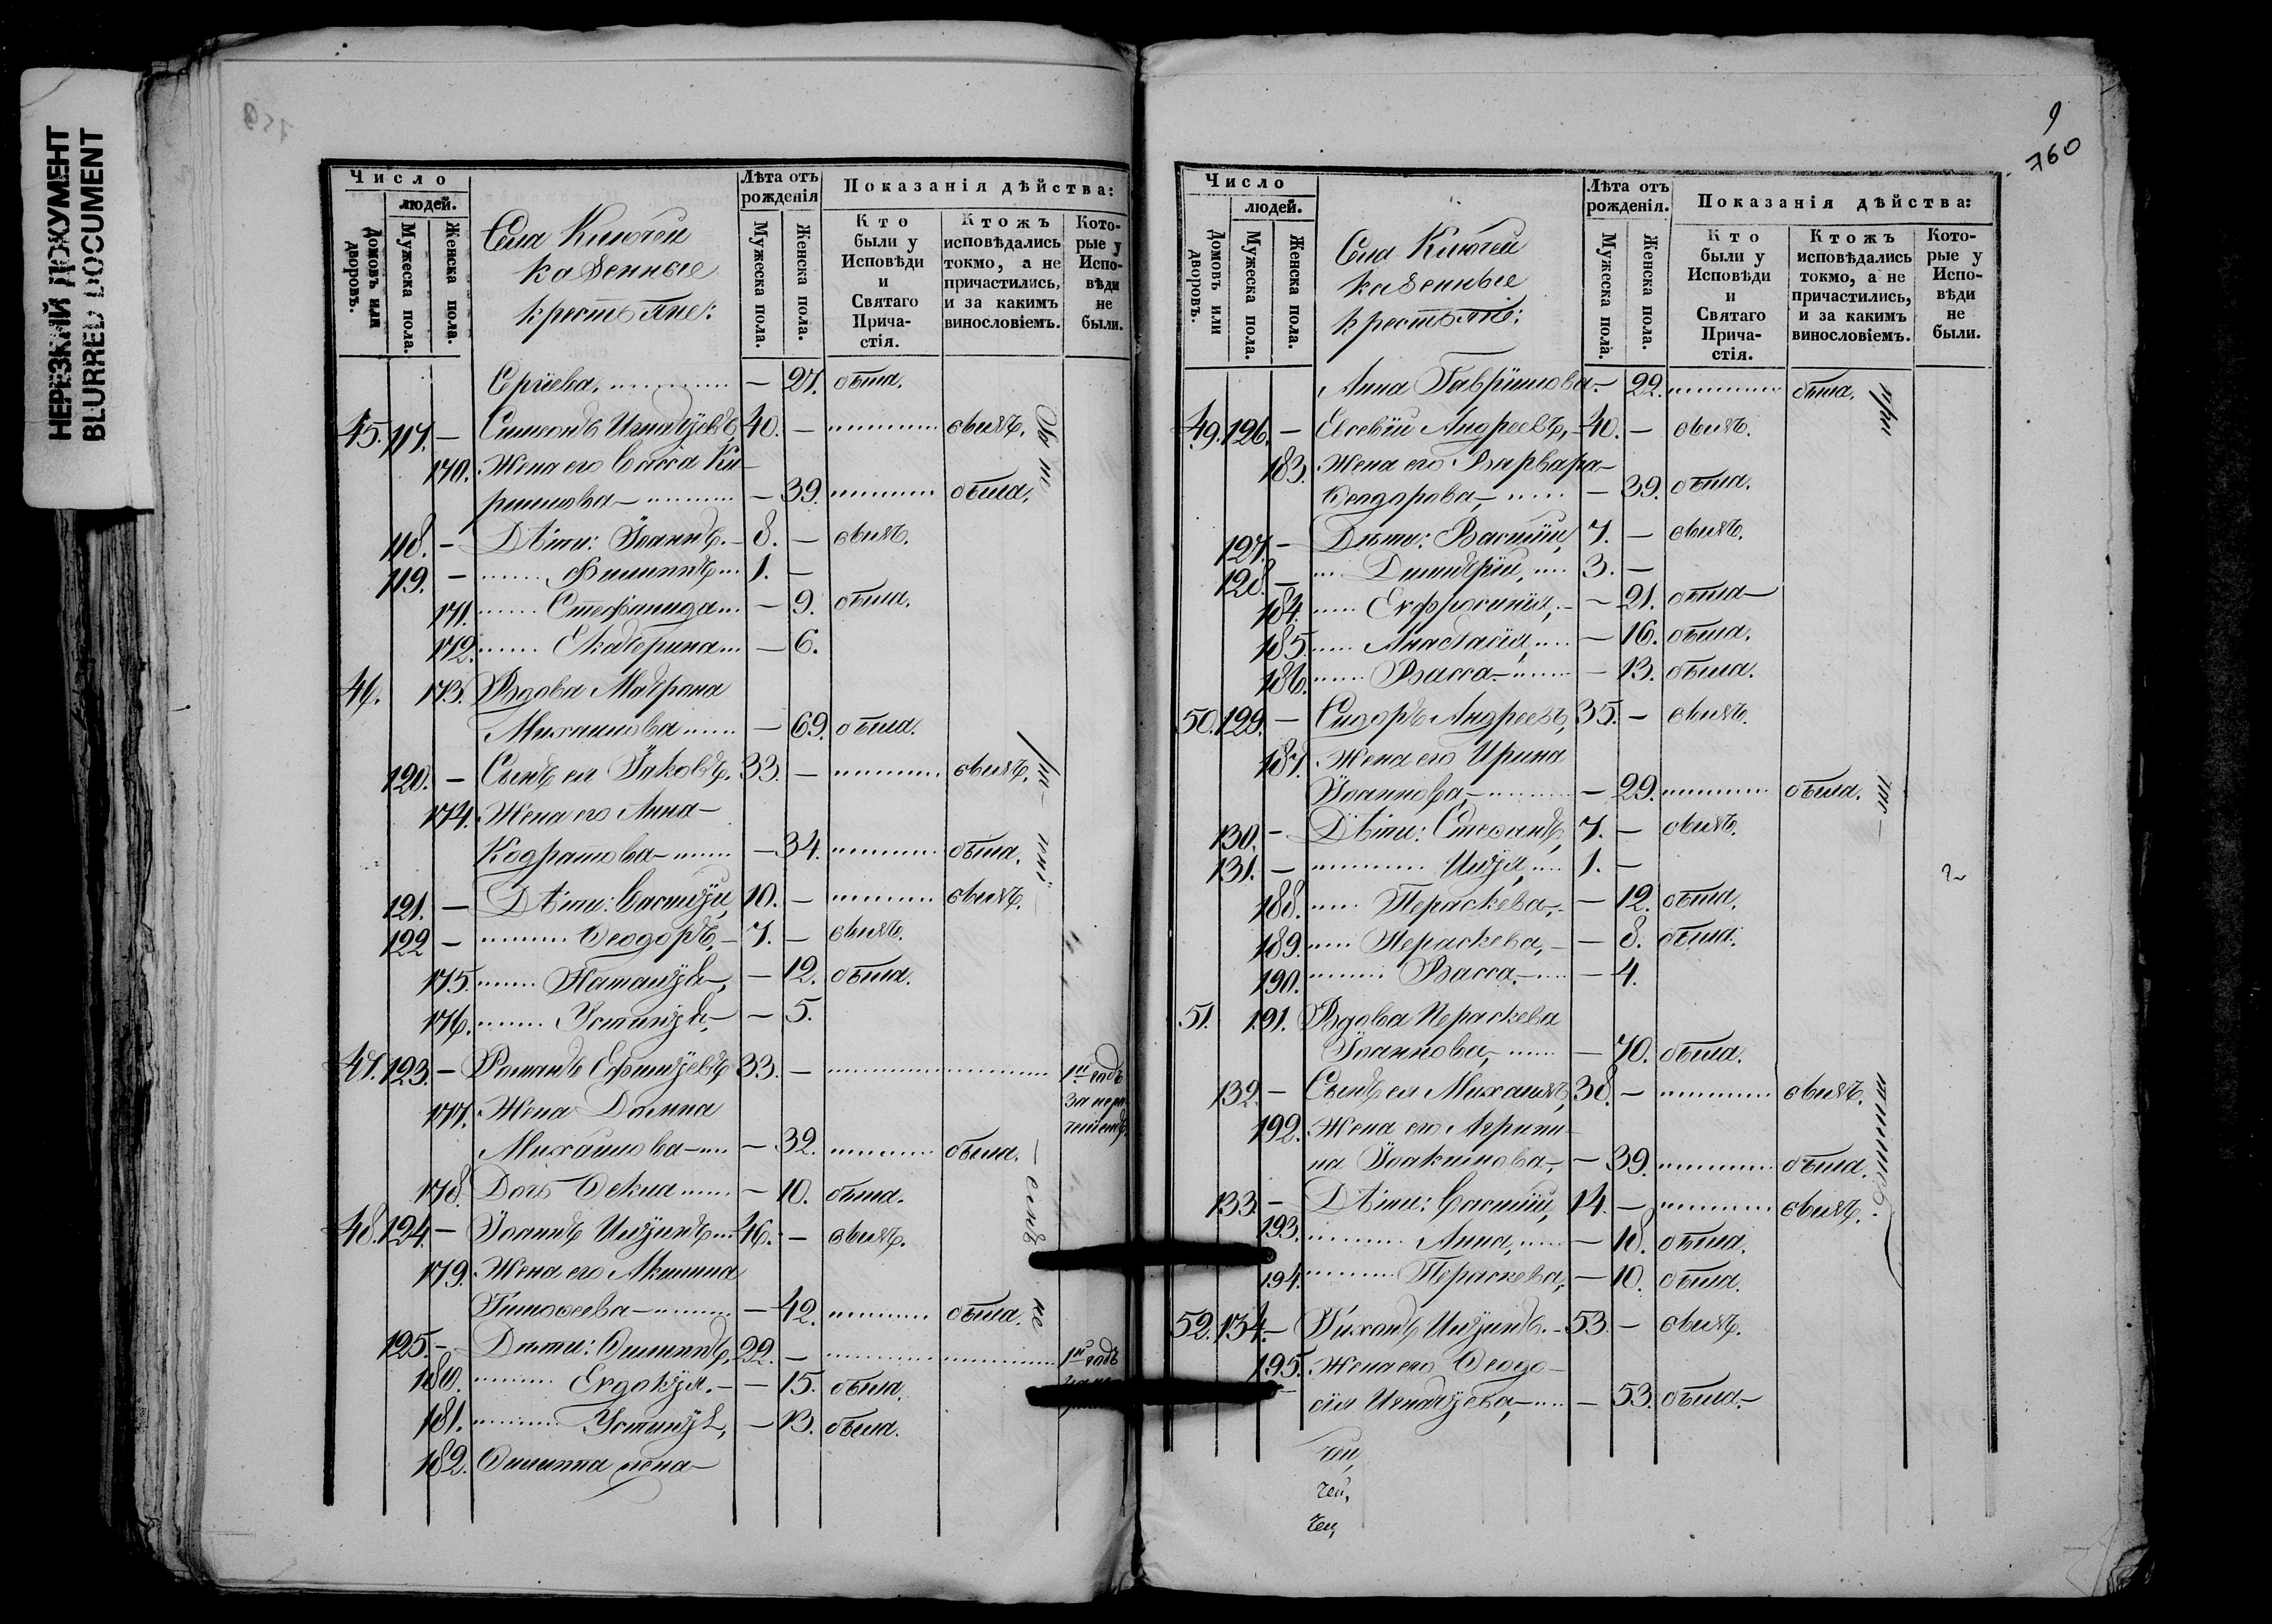 НЕРЕЗКИЙ ДОКУМЕНТ
BLURRED DOCUMENT
Число
людей.
Домовъ или дворовъ.
Мужеска пола.
Женска пола.
Села Ключей
казенные
крестьяне:
Лѣта отъ рожденія
Мужеска пола.
Женска пола.
Показанія дѣйства:
Кто были у Исповѣди и Святаго Прича-стія.
Ктожъ исповѣдались токмо, а не причастились, и за какимъ винословіемъ.
Кото-рые у Испо-вѣди не были.
— 27. была.
45. 117. — 40. — былъ.
170. Жена его Васса Ки-
рилова — 39. была.
118. — Дѣти: Іоаннъ. 8. — былъ.
119. — Филиппъ 1. —
171. Стефанида — 9. была.
172. Екатерина — 6.
46. 173. Вдова Матрона
Михаилова — 69. была.
120. — Сынъ ея Іаковъ, 33. — былъ.
174. Жена его Анна
Кодратова — 34. была.
121. — Дѣти: Василій, 10. — былъ.
122 — Ѳеодоръ, 7. — былъ.
175. Наталія, — 12. была.
176. Устинія, — 5.
47. 123. — Романъ Ефимовъ 33. — 1й годъ
за
177. Жена Домна
Михаилова — 32. была.
178. Дочь Ѳекла — 10. была.
48. 124. — Іоаннъ Ильинъ 46. — былъ.
179. Жена его Акилина
Тимоѳеева — 42. была.
125. — Дѣти: Филиппъ, 22. — 1й годъ
180. Евдокія. — 15. была.
181. Устинія, — 13. была.
182. Филиппа жена
9
760
Число
людей.
Домовъ или дворовъ.
Мужеска пола.
Женска пола.
Села Ключей
казенные
крестьяне:
Лѣта отъ рожденія.
Мужеска пола.
Женска пола.
Показанія дѣйства:
Кто были у Исповѣди и Святаго Прича-стія.
Ктожъ исповѣдались токмо, а не причастились, и за какимъ винословіемъ.
Кото-рые у Испо-вѣди не были.
Анна Гаврилова — 22. была.
49. 126. — Евсевій Андреевъ, 40. — былъ.
183. Жена его Варвара
Ѳеодорова, — 39. была.
127. — Дѣти: Василій, 7. — былъ.
128. — Димитрій, 3. —
184. Евфросинія, — 21. была
185. Анастасія, — 16. была.
186. Васса — 13. была.
50. 129. — Сидоръ Андреевъ, 35. — былъ.
187. Жена его Ирина
Іоаннова, — 29. была.
130. — Дѣти: Стефанъ, 7. — былъ.
131. — Илія, 1. —
188. Параскева, — 12. была.
189. Параскева, — 8. была.
190. Васса, — 4.
51. 191. Вдова Параскева
Іоаннова, — 70. была.
132. — Сынъ ея Михаилъ, 38. — былъ.
192. Жена его Агрипи-
на Іоакимова, — 39. была.
133. — Дѣти: Василій, 14. — былъ.
193. Анна, — 18. была.
194. Параскева, — 10. была.
52. 134. — Тихонъ Ильинъ. 53. — былъ.
195. Жена его Ѳеодо-
сія Игнатіева, — 53. была.
чей,
чей,
чей,